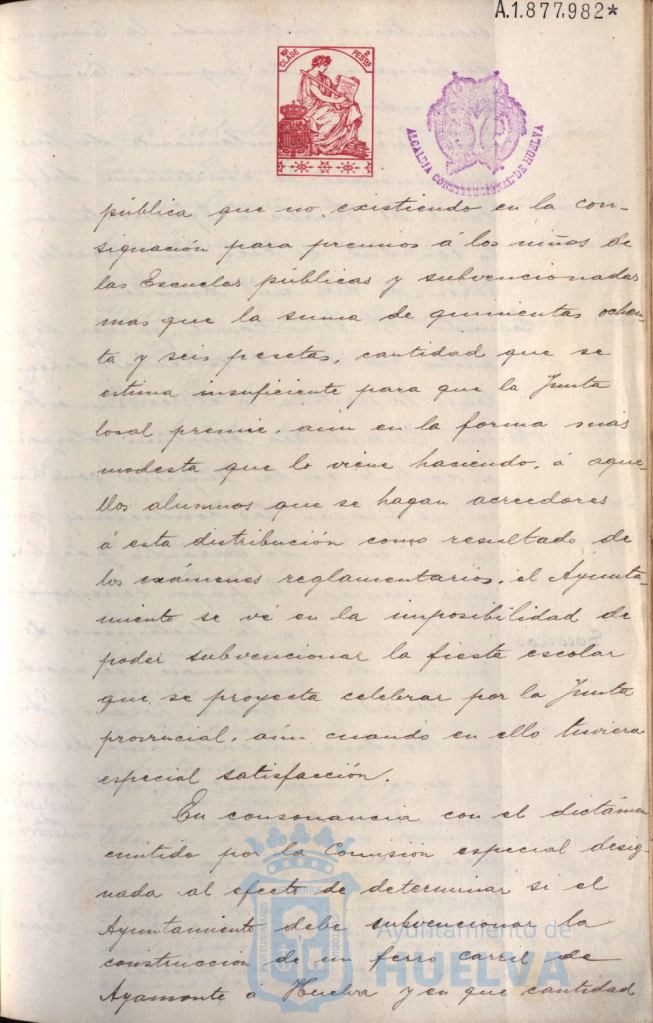 A.1.877,982*
10ª CLASE 2 PESTAS
ALCALDIA CONSTITUCIONAL DE HUELVA
pública que no existiendo en la con-
signación para premios á los niños de
las Escuelas públicas y subvencionadas
mas que la suma de quinientas ochen-
ta y seis pesetas, cantidad que se
estima insuficiente para que la Junta
local premie, aun en la forma más
modesta que lo viene haciendo, á aque-
llos alumnos que se hagan acreedores
á esta distribución como resultado de
los exámenes reglamentarios, el Ayunta-
miento se vé en la imposibilidad de
poder subvencionar la fiesta escolar
que se proyecta celebrar por la Junta
provincial, aún cuando en ello tuviera
especial satisfacción.
En consonancia con el dictámen
emitido por la Comisión especial desig-
nada al efecto de determinar si el
Ayuntamiento debe subvencionar la
construcción de un ferro carril de
Ayamonte á Huelva y en que cantidad
Ayuntamiento de
HUELVA